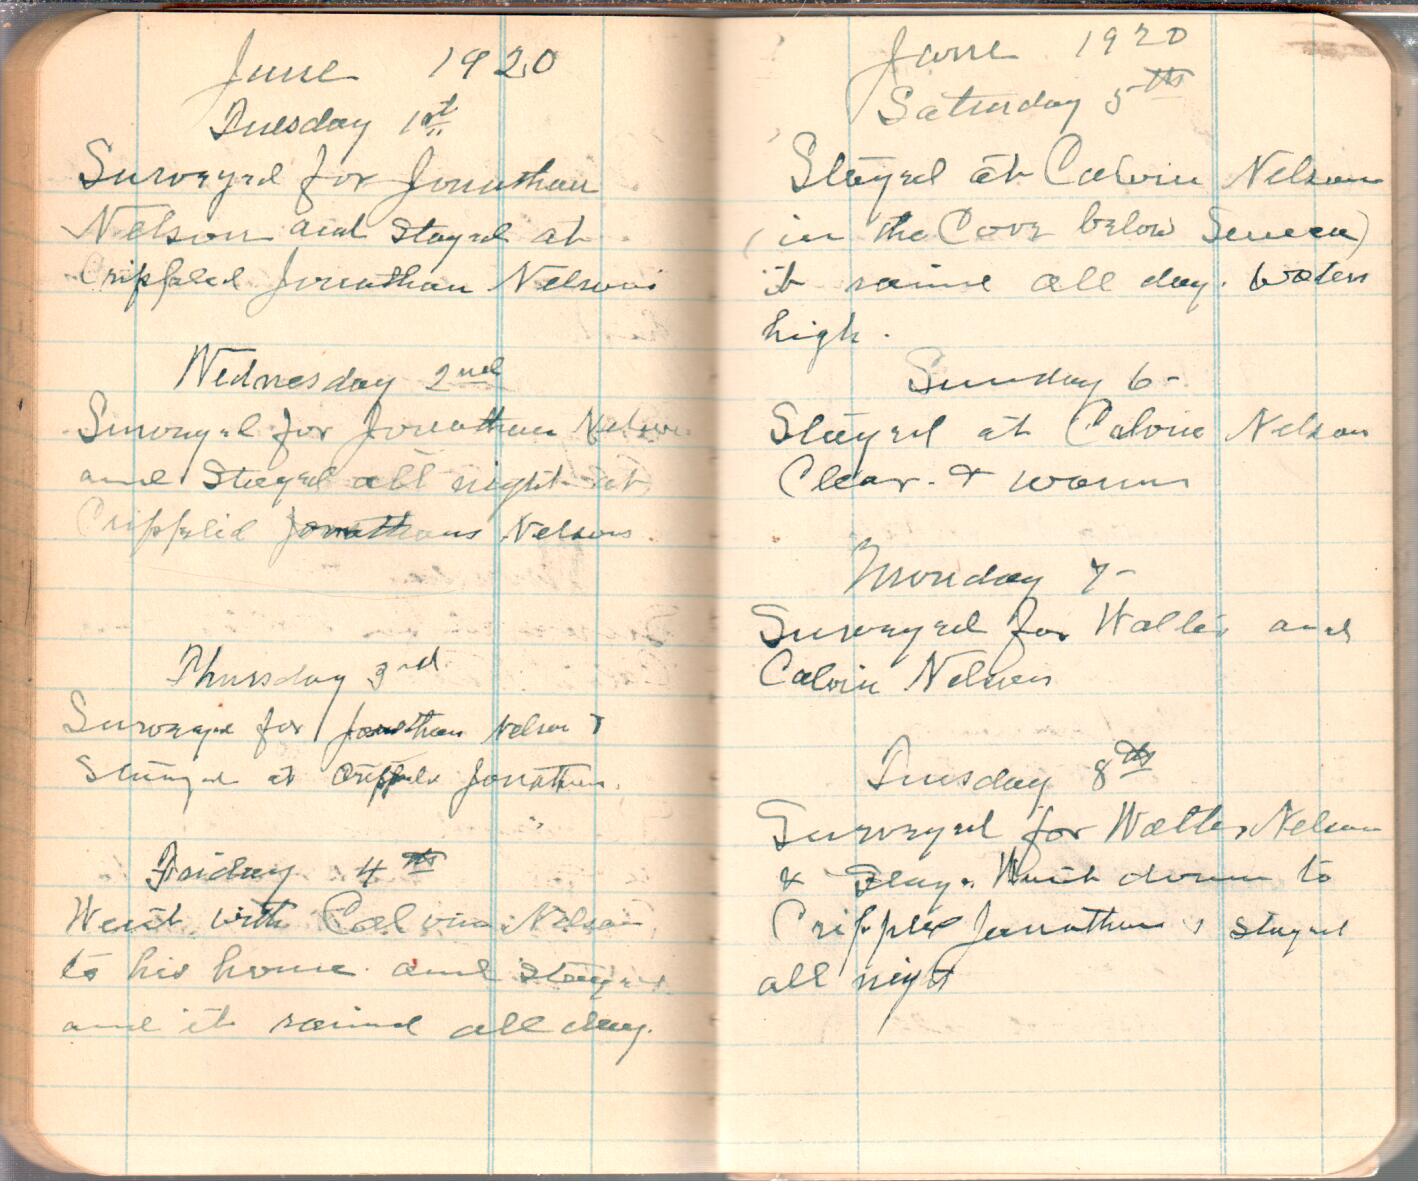 June 1920
Tuesday 1st
Surveyed for Jonathan
Nelson and stayed at
Crippled Jonathan Nelsons
Wednesday 2nd
Surveyed for Jonathan Nelson
and stayed all night at
Crippled Jonathans Nelsons
Thursday 3rd
Surveyed for Jonathan Nelson &
Stayed at Cripple Jonathan.
Friday 4th
Went with Calvin Nelson
to his home and stayed
and it rained all day.
June 1920
Saturday 5th
Stayed at Calvin Nelson
(in the Cove below Seneca)
it rained all day. Waters
high.
Sunday 6-
Stayed at Calvin Nelson
Clear. & warm
Monday 7-
Surveyed for Walter and
Calvin Nelson
Tuesday 8th
Surveyed for Walter Nelson
& Went down to
Cripple Jonathan & stayed
all night